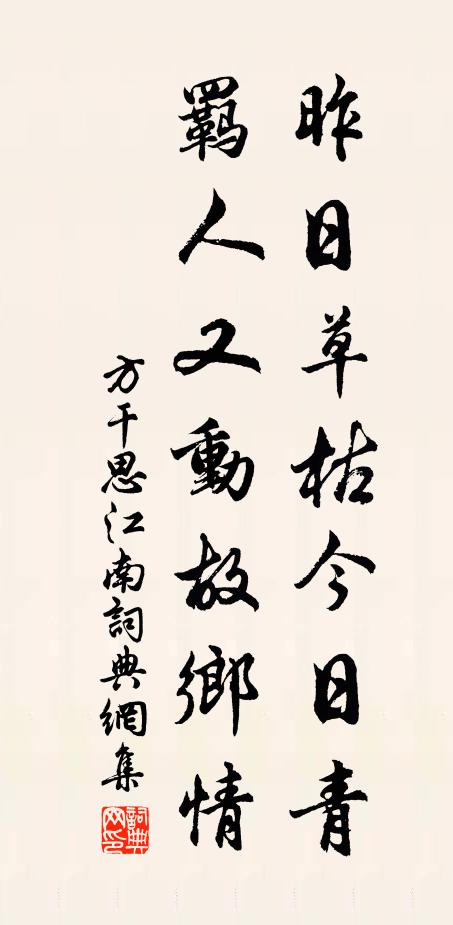 昨日草枯今日青
羈人又動故鄉情
方干思江南詞典網集
詞典網印